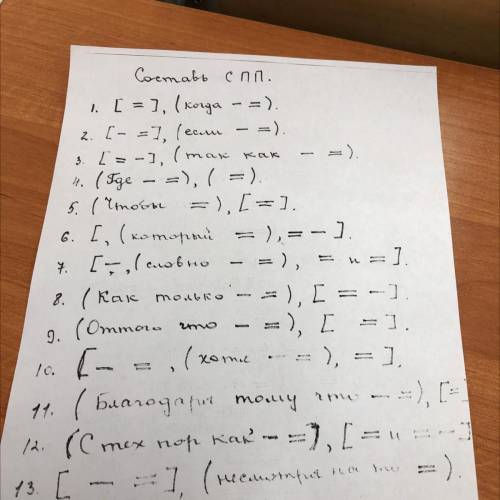 Составь СПП.
1. [ = ], (когда – =).
2. [ – = ], (если – =).
3. [ = – ], (так как – =).
4. (Где – =), ( =).
5. (Чтобы =), [ = ].
6. [ , (который = ), = – ].
7. [ –, (словно – = ), = и = ].
8. (Как только – =), [ = – ].
9. (Оттого что – =), [ = ].
10. [ – = , (хотя – = ), = ].
11. (Благодаря тому что – =), [ =
12. (С тех пор как – =), [ = и = –
13. [ – = ], (несмотря на то = ).